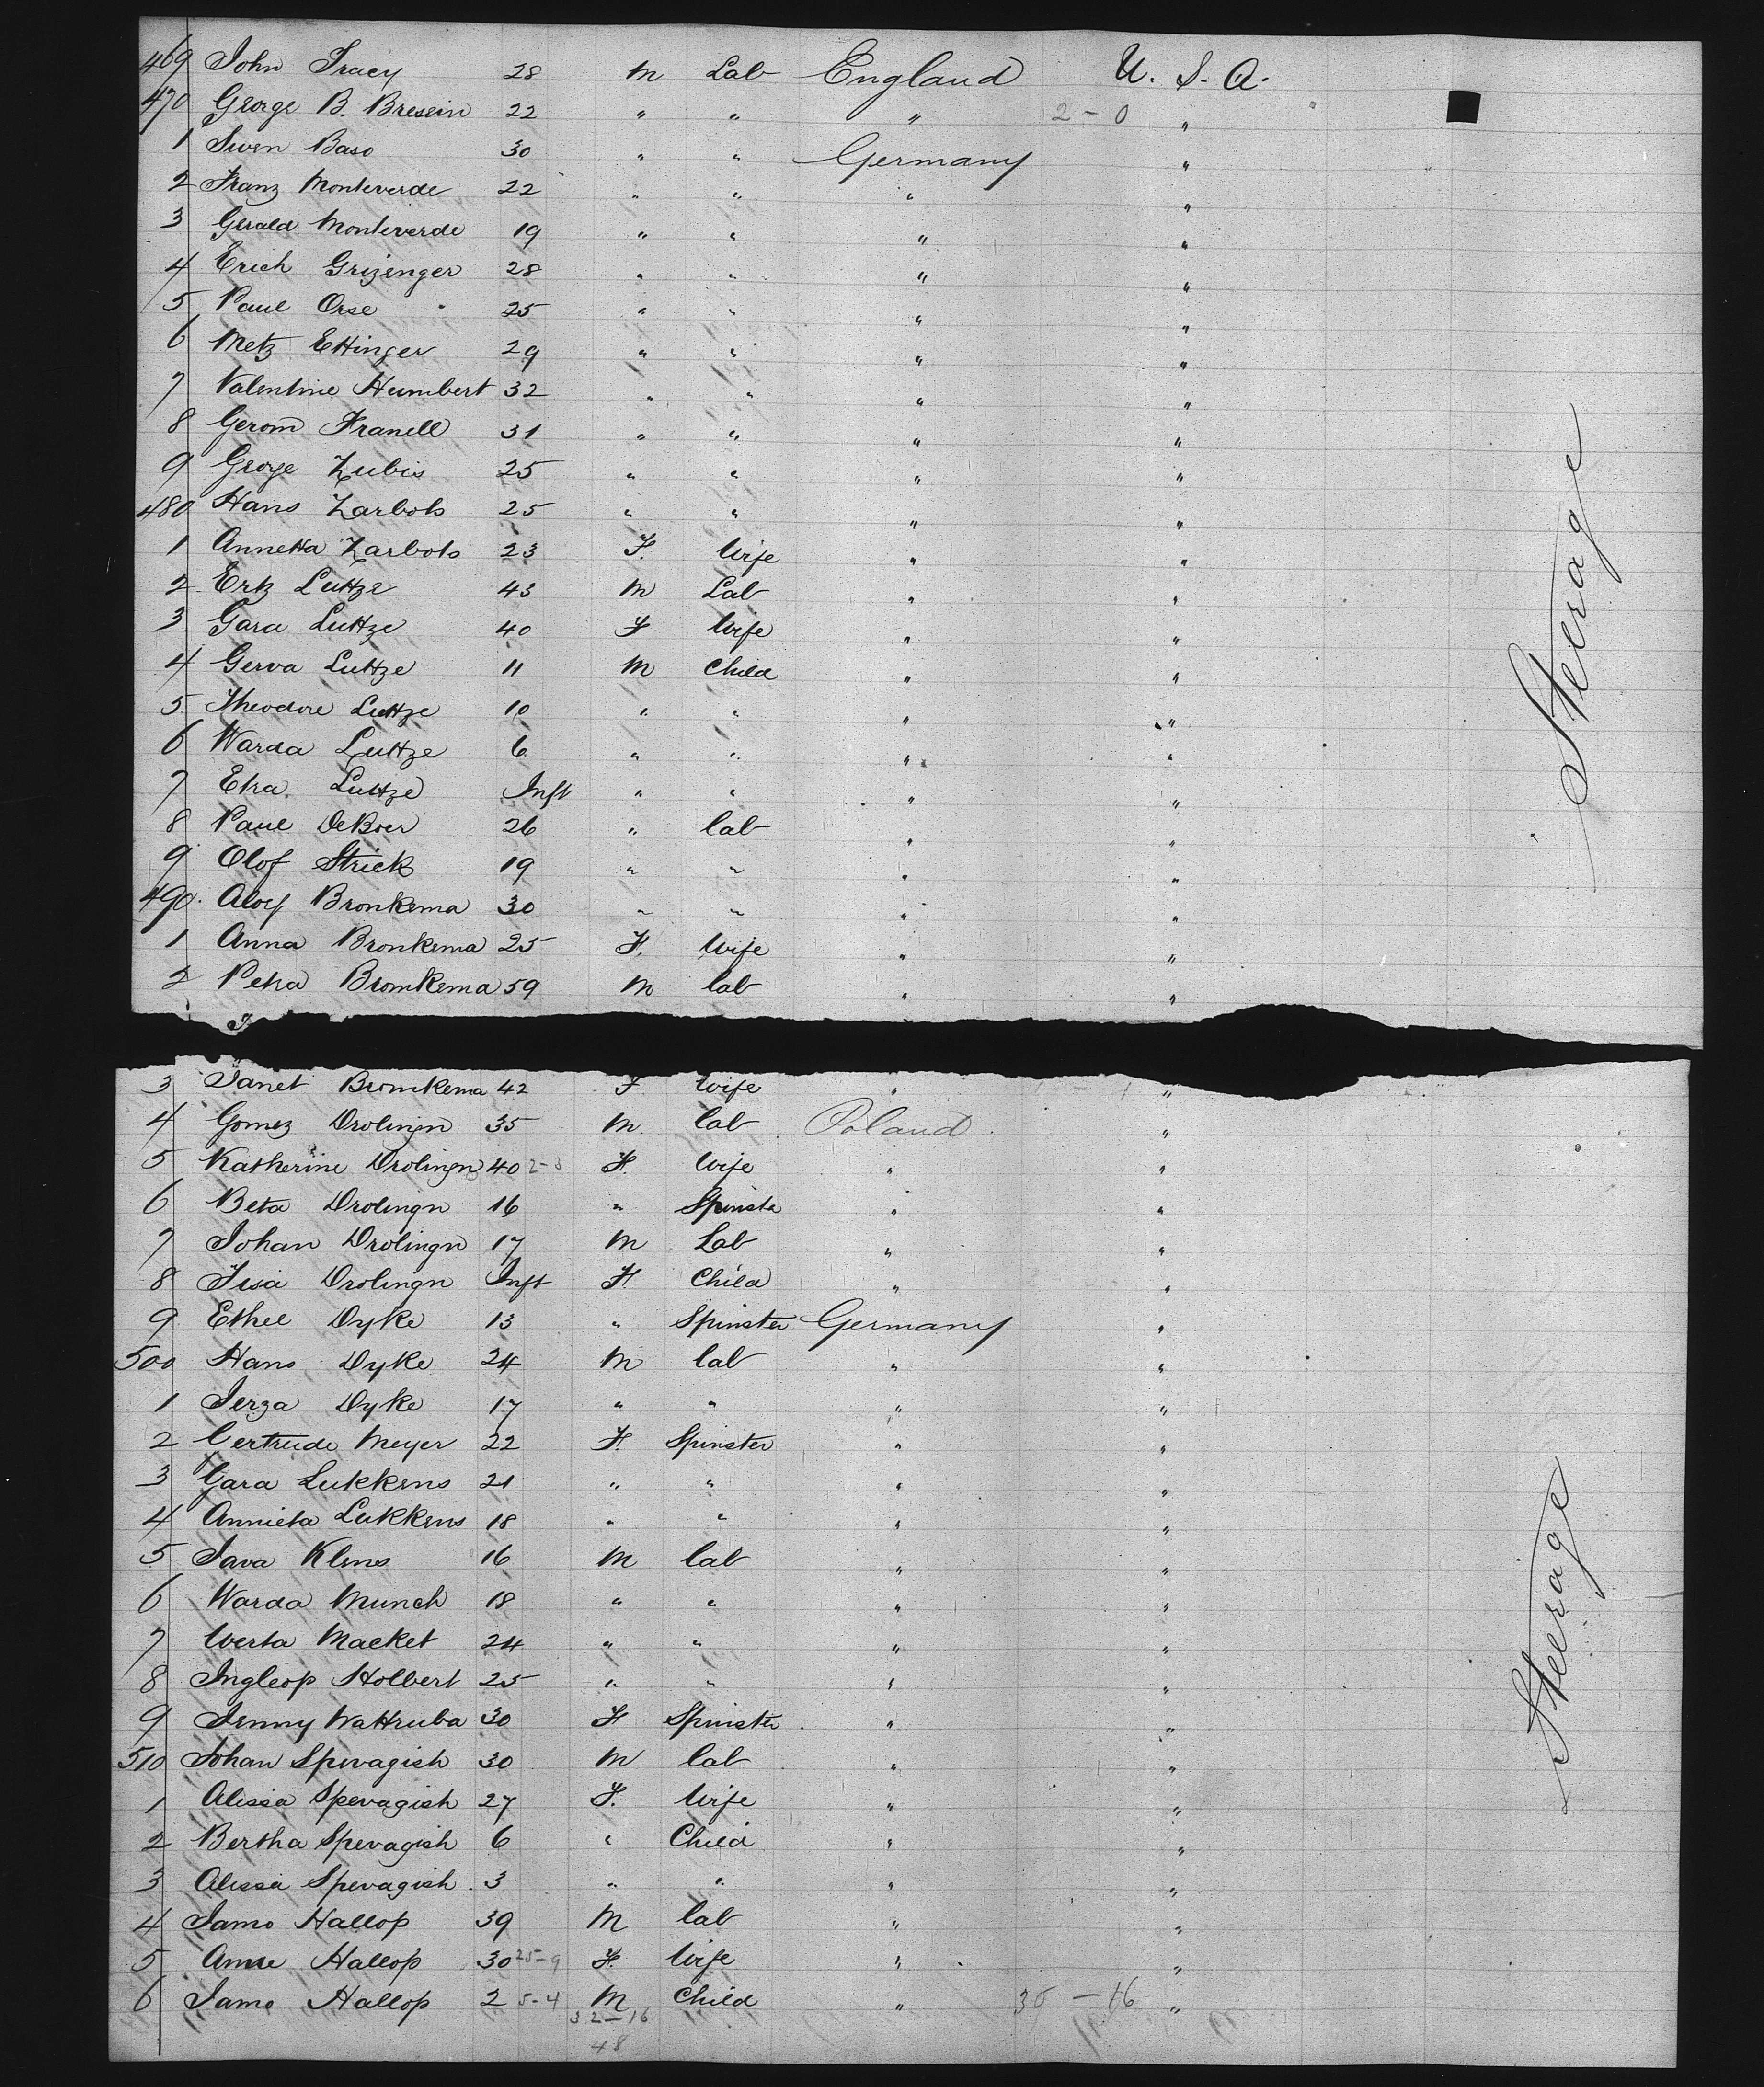 469 John Tracy 28 M Lab England U. S. A.
470 George B. Bresein 22 " " " 2-0 "
1 Swen Baso 30 " " Germany "
2 Franz Monteverde 22 " " " "
3 Gerald Monteverde 19 " " " "
4 Erich Grizenger 28 " " " "
5 Paul Orse 25 " " " "
6 Metz Ettinger 29 " " " "
7 Valentine Humbert 32 " " " "
8 Gerom Franell 31 " " " "
9 George Zubis 25 " " " "
480 Hans Zarbots 25 " " " "
1 Annetta Zarbots 23 F. Wife " "
2 Ertz Luttze 43 M Lab " "
3 Gara Luttze 40 F Wife " "
4 Gerva Luttze 11 M Child " "
5 Theodore Luttze 10 " " " "
6 Warda Luttze 6 " " " "
7 Etra Luttze Inft " " " "
8 Paul DeBoer 26 " Lab " "
9 Olof Strick 19 " " " "
490. Aloy Bronkema 30 " " " "
1 Anna Bronkema 25 F. Wife " "
2 Petra Bromkema 59 M Lab " "
Steerage
3 Janet Bromkema 42 F Wife " "
4 Gomez Drolingn 35 M. Lab Poland "
5 Katherine Drolingn 40 2-3 F. Wife " "
6 Beta Drolingn 16 " Spinste " "
7 Johan Drolingn 17 M Lab " "
8 Jisa Drolingn Inft F. Child " "
9 Ethel Dyke 13 " Spinster Germany "
500 Hans Dyke 24 M Lab " "
1 Jerza Dyke 17 " " " "
2 Gertrude Meyer 22 F. Spinster " "
3 Gara Lukkens 21 " " " "
4 Annieta Lukkens 18 " " " "
5 Java Klens 16 M Lab " "
6 Warda Munch 18 " " " "
7 Werta Macket 24 " " " "
8 Ingleop Holbert 25 " " " "
9 Jenny Wattruba 30 F Spinster " "
510 Johan Spevagish 30 M Lab " "
1 Alissa Spevagish 27 F. Wife " "
2 Bertha Spevagish 6 " Child " "
3 Alissa Spevagish 3 " " " "
4 Jamo Hallop 39 M Lab " "
5 Anne Hallop 30 25-9 F. Wife " "
6 Jamo Hallop 2 5-4 M Child " 30 - 16 "
32-16
48
Steerage